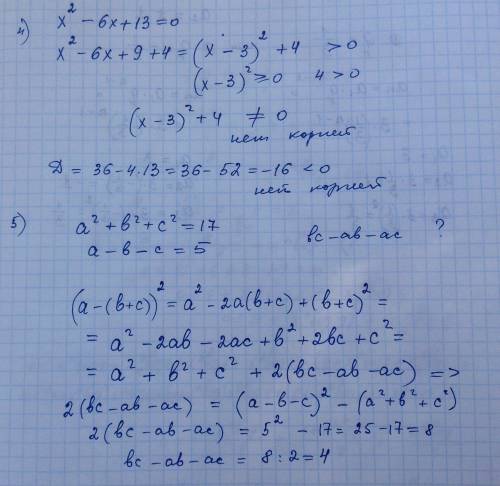 4) x² - 6x + 13 = 0
x² - 6x + 9 + 4 = (x - 3)² + 4 > 0
(x - 3)² ≥ 0 4 > 0
(x - 3)² + 4 ≠ 0
нет корней
Д = 36 - 4·13 = 36 - 52 = -16 < 0
нет корней
5) a² + b² + c² = 17
a - b - c = 5 bc - ab - ac ?
(a - (b + c))² = a² - 2a(b + c) + (b + c)² =
= a² - 2ab - 2ac + b² + 2bc + c² =
= a² + b² + c² + 2(bc - ab - ac) =>
2(bc - ab - ac) = (a - b - c)² - (a² + b² + c²)
2(bc - ab - ac) = 5² - 17 = 25 - 17 = 8
bc - ab - ac = 8 : 2 = 4